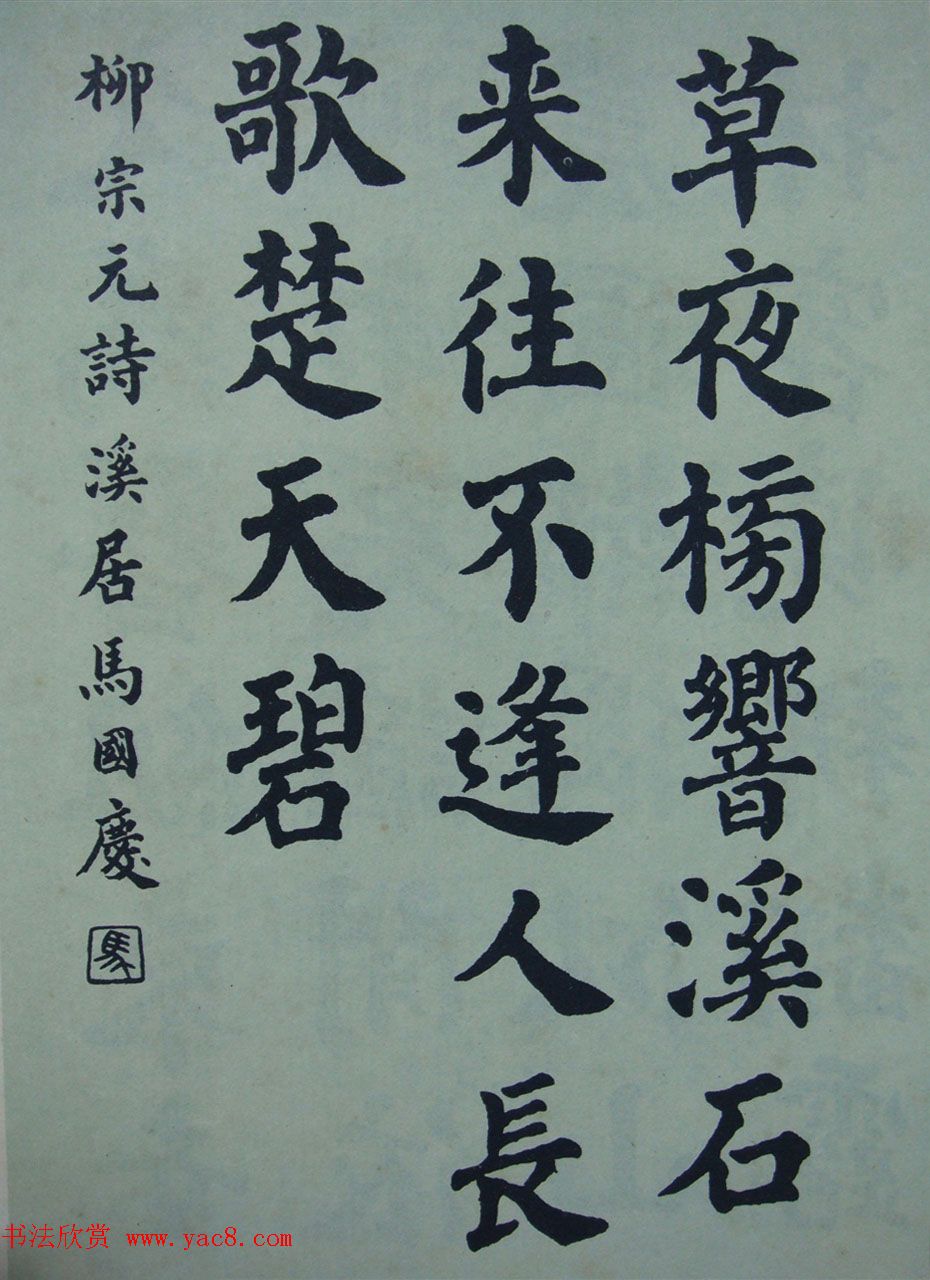 草夜榜響溪石
来往不逢人長
歌楚天碧
柳宗元詩溪居馬國慶
馬
书法欣赏 www.yac8.com